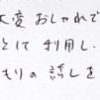 大変おしゃれで
として利用し.
もりの話しを